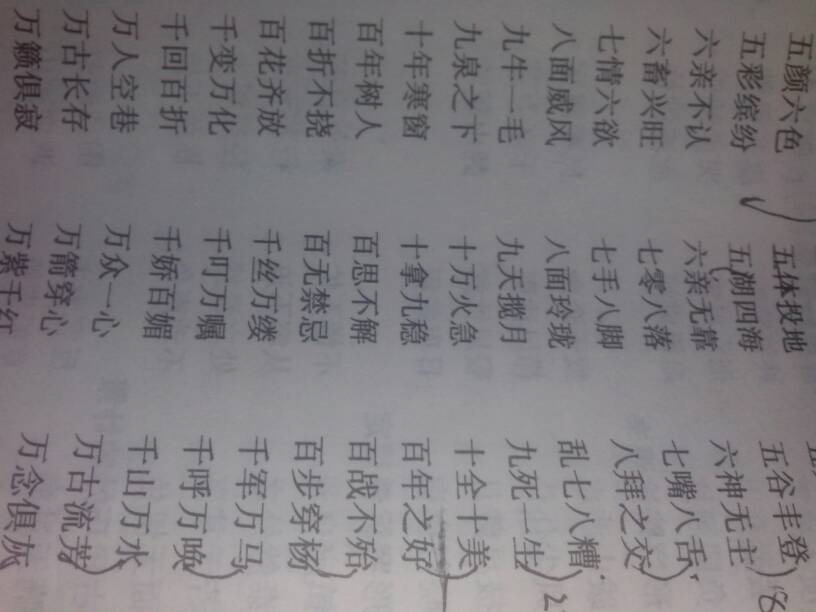 五颜六色 五体投地 五谷丰登
五彩缤纷 五湖四海 六神无主
六亲不认 六亲无靠 七嘴八舌
六畜兴旺 七零八落 八拜之交
七情六欲 七手八脚 乱七八糟
八面威风 八面玲珑 九死一生
九牛一毛 九天揽月 十全十美
九泉之下 十万火急 百年之好
十年寒窗 十拿九稳 百战不殆
百年树人 百思不解 百步穿杨
百折不挠 百无禁忌 千军万马
百花齐放 千丝万缕 千呼万唤
千变万化 千叮万嘱 千山万水
千回百折 千娇百媚 万古流芳
万人空巷 万众一心 万念俱灰
万古长存 万箭穿心
万籁俱寂 万紫千红